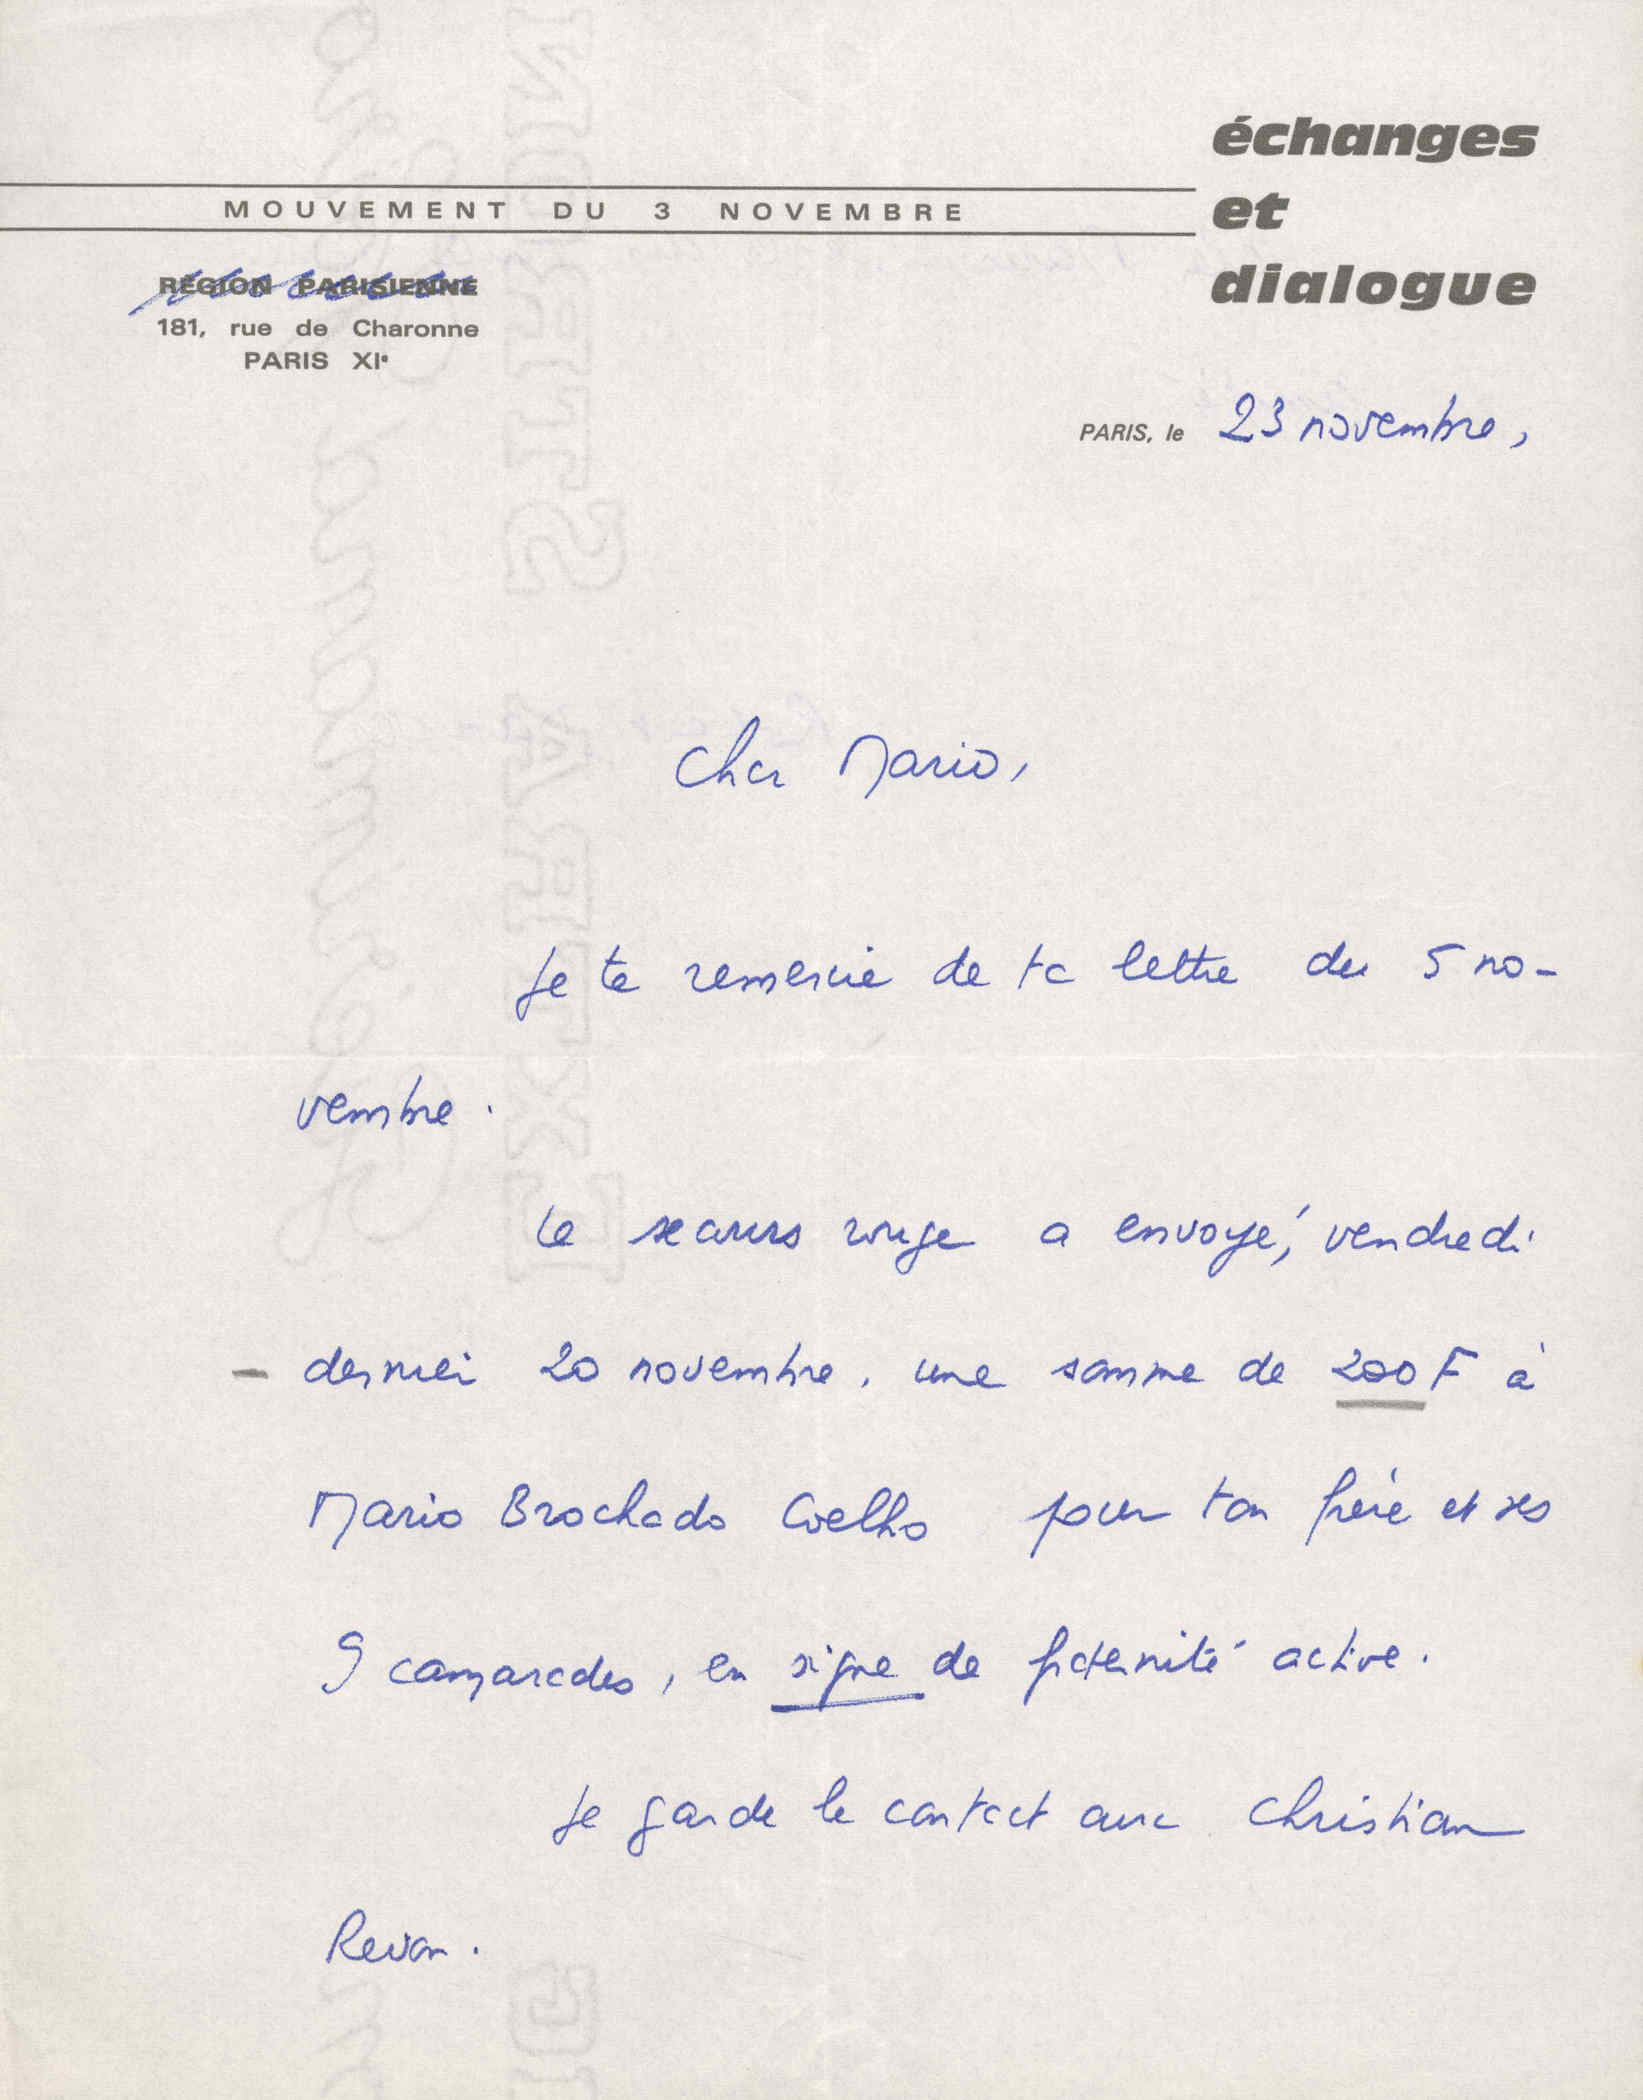 échanges
et
dialogue
MOUVEMENT DU 3 NOVEMBRE
RÉGION PARISIENNE
181, rue de Charonne
PARIS XIe
PARIS, le 23 novembre,
Cher Mario,
Je te remercie de ta lettre du 5 no-
vembre.
Le secours rouge a envoyé, vendredi
dernier 20 novembre, une somme de 200 F à
Mario Brochado Coelho pour ton frère et ses
9 camarades, en signe de fraternité active.
Je garde le contact avec Christian